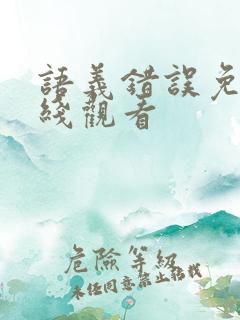 語義錯誤免
綫觀看
危險等級
未经同意禁止转载